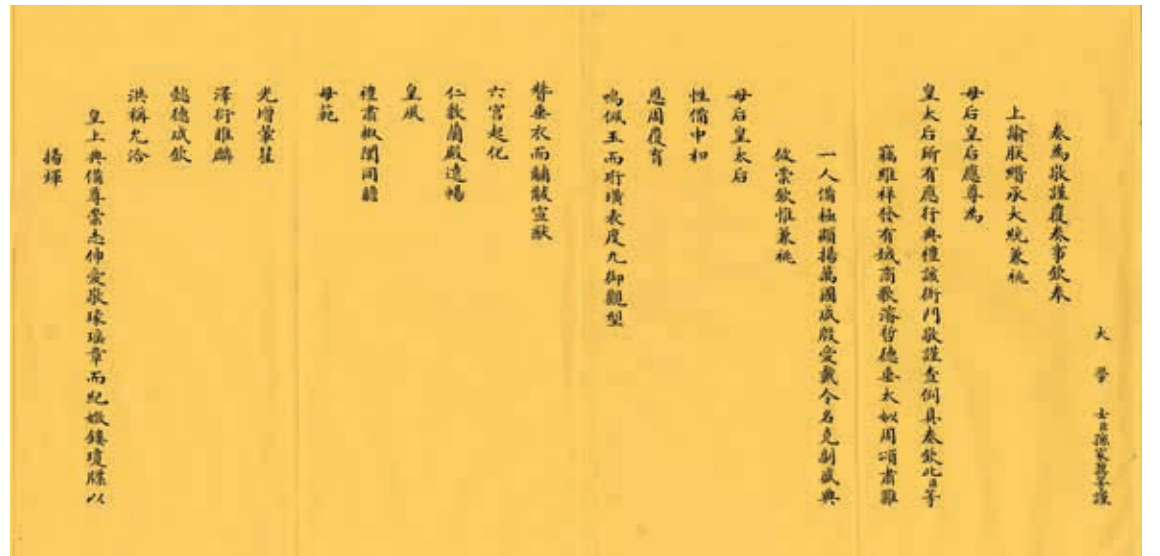 大學士臣孫家鼐等謹
奏為敬謹覆奏事欽奉
上諭朕纘承大統兼祧
母后皇后應尊為
皇太后所有應行典禮該衙門敬謹查例具奏欽此臣等
竊維祥發有娀商歌濬哲德垂太姒周頌肅雝
一人備極顯揚萬國咸殷愛戴令名克副盛典
攸崇欽惟兼祧
母后皇太后
性備中和
恩周覆育
鳴佩玉而珩璜表度九御觀型
襄垂衣而黼黻宣猷
六宮起化
仁敷蘭殿遠暢
皇風
禮肅椒闈同瞻
母範
光增翬翟
澤衍雎麟
懿德咸欽
洪稱允洽
皇上典備尊崇志伸愛敬琢瑤章而紀媺鏤瓊牒以
揚輝